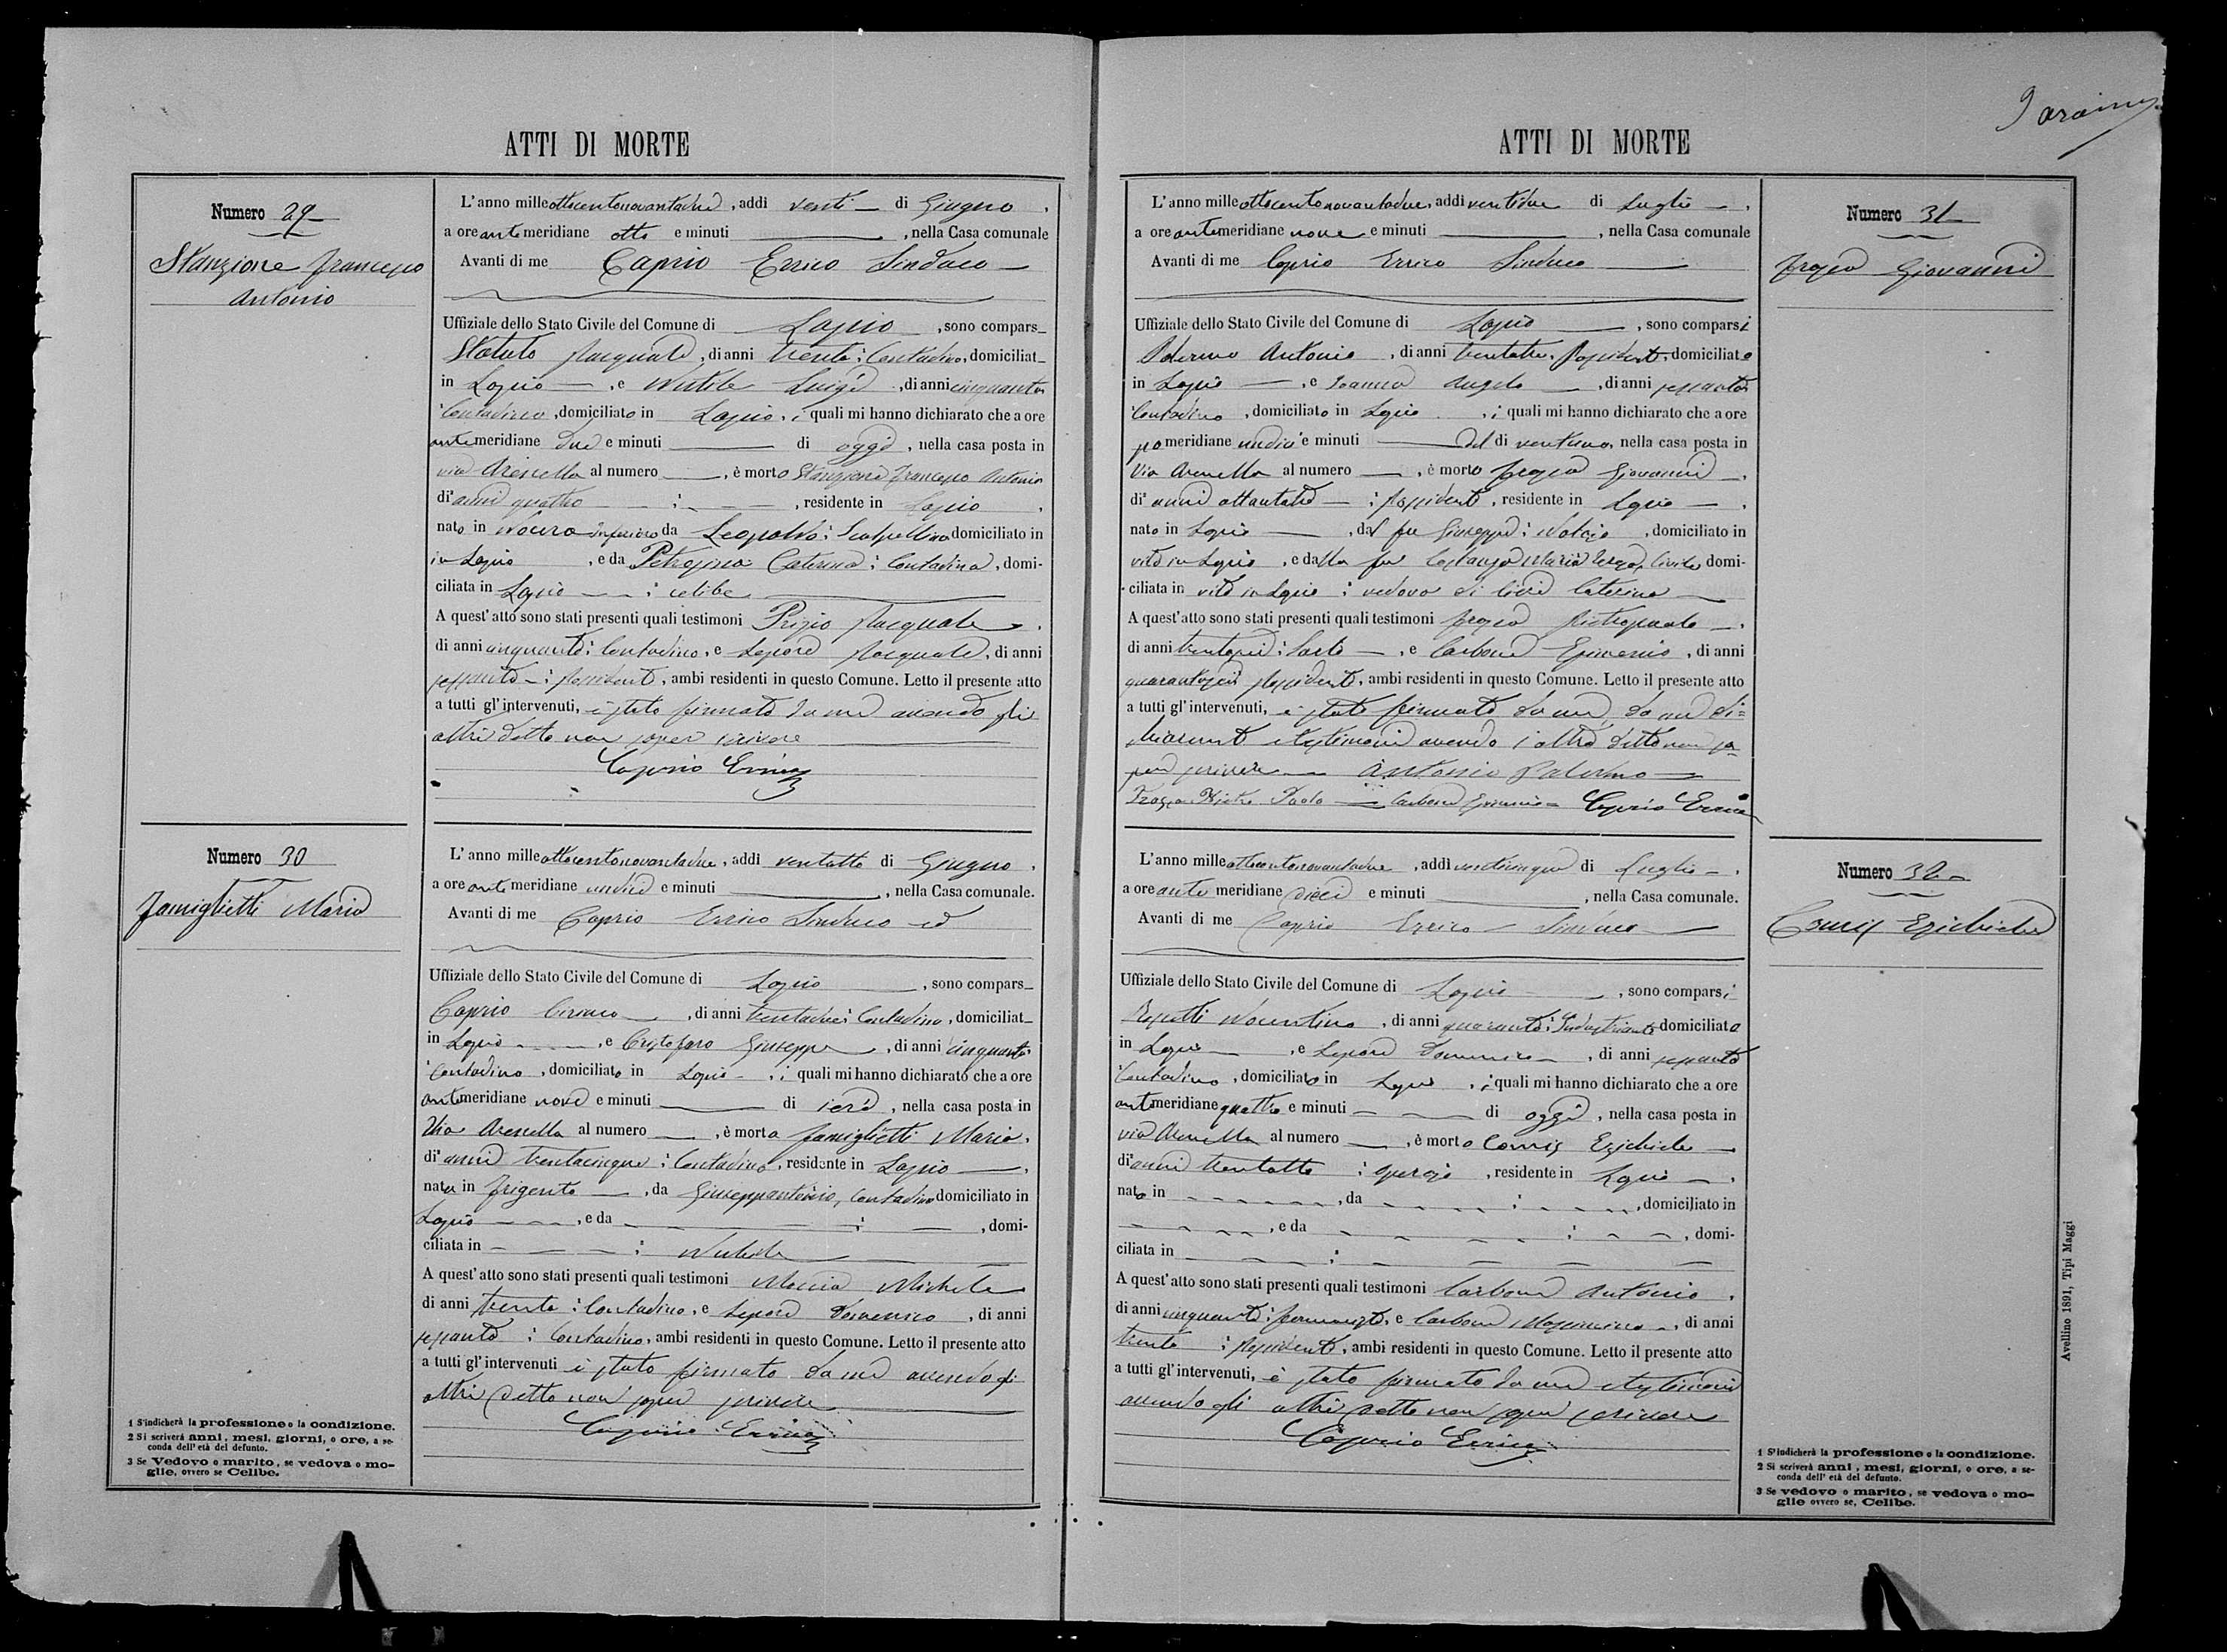 ATTI DI MORTE
Numero 29
Stanzione Francesco
Antonio
L'anno milleottocentonovantadue, addì venti di Giugno,
a ore antimeridiane otto e minuti, nella Casa comunale
Avanti di me Caprio Errico Sindaco
Uffiziale dello Stato Civile del Comune di Lapio, sono compars
Pasquale, di anni trenta; Contadino, domiciliat
in Lapio, e Luigi, di anni cinquanta
Contadino, domiciliato in Lapio, i quali mi hanno dichiarato che a ore
antimeridiane due e minuti di oggi, nella casa posta in
via Arenella al numero, è morto Stanzione Francesco Antonio
di anni quattro ; , residente in Lapio,
nato in Nocera Inferiore da Leopoldo; Scalpellino domiciliato in
in Lapio, e da Caterina; Contadina, domi-
ciliata in Lapio ; celibe
A quest'atto sono stati presenti quali testimoni Prizio Pasquale,
di anni cinquanta; Contadino, e Lepore Pasquale, di anni
sessanta; possidente, ambi residenti in questo Comune. Letto il presente atto
a tutti gl'intervenuti, è stato firmato da me avendo gli
altri detto non saper scrivere
Caprio Errico
Numero 30
Famiglietti Maria
L'anno milleottocentonovantadue, addì ventotto di Giugno,
a ore antimeridiane undici e minuti, nella Casa comunale.
Avanti di me Caprio Errico Sindaco ed
Uffiziale dello Stato Civile del Comune di Lapio, sono compars
Caprio Ciriaco, di anni trentadue; Contadino, domiciliat
in Lapio, e Cristofaro Giuseppe, di anni cinquanta
Contadino, domiciliato in Lapio, i quali mi hanno dichiarato che a ore
antimeridiane nove e minuti di ieri, nella casa posta in
Via Arenella al numero, è morta Famiglietti Maria,
di anni trentacinque; Contadina, residente in Lapio,
nata in Frigento, da Giuseppantonio, Contadino domiciliato in
Lapio, e da ; , domi-
ciliata in ; Nubile
A quest'atto sono stati presenti quali testimoni Moccia Michele
di anni trenta; Contadino, e Lepore Domenico, di anni
sessanta; Contadino, ambi residenti in questo Comune. Letto il presente atto
a tutti gl'intervenuti è stato firmato da me avendo gli
altri detto non saper scrivere
Caprio Errico
1 S'indicherà la professione o la condizione.
2 Si scriverà anni, mesi, giorni, o ore, a se-
conda dell'età del defunto.
3 Se Vedovo o marito, se vedova o mo-
glie, ovvero se Celibe.
ATTI DI MORTE
Numero 31
Giovanni
L'anno milleottocentonovantadue, addì ventidue di Luglio,
a ore antimeridiane nove e minuti, nella Casa comunale
Avanti di me Caprio Errico Sindaco
Uffiziale dello Stato Civile del Comune di Lapio, sono comparsi
Palermo Antonio, di anni trentatre, possidente domiciliato
in Lapio, e Angelo, di anni sessanta
Contadino, domiciliato in Lapio, i quali mi hanno dichiarato che a ore
pomeridiane undici e minuti del dì ventuno, nella casa posta in
Via Arenella al numero, è morto Giovanni,
di anni ottantatre; possidente, residente in Lapio,
nato in Lapio, dal fu Giuseppe; Notaio, domiciliato in
vita in Lapio, e dalla fu Costanza Maria Teresa, Civile, domi-
ciliata in vita in Lapio; vedovo di Caterina
A quest'atto sono stati presenti quali testimoni Pietropaolo,
di anni; Sarto, e Carbone Epimenio, di anni
quarantasei possidente, ambi residenti in questo Comune. Letto il presente atto
a tutti gl'intervenuti, è stato firmato da me, da un di=
chiarante e testimoni avendo l'altro detto non sa-
per scrivere Antonio Palermo
Pietro Paolo Carbone Epimenio = Caprio Errico
Numero 32
Ezechiele
L'anno milleottocentonovantadue, addì venticinque di Luglio,
a ore antimeridiane dieci e minuti, nella Casa comunale.
Avanti di me Caprio Errico Sindaco
Uffiziale dello Stato Civile del Comune di Lapio, sono comparsi
Nocentino, di anni quaranta; Industriante domiciliato
in Lapio, e Lepore Domenico, di anni sessanta
Contadino, domiciliato in Lapio, i quali mi hanno dichiarato che a ore
antimeridiane quattro e minuti di oggi, nella casa posta in
via Arenella al numero, è morto Ezechiele
di anni trentotto; operaio, residente in Lapio,
nato in, da ; , domiciliato in
, e da ; , domi-
ciliata in ;
A quest'atto sono stati presenti quali testimoni Carbone Antonio,
di anni cinquanta; farmacista, e Carbone, di anni
trenta; possidente, ambi residenti in questo Comune. Letto il presente atto
a tutti gl'intervenuti, è stato firmato da me e testimoni
avendo gli altri detto non saper scrivere
Caprio Errico
1 S'indicherà la professione o la condizione.
2 Si scriverà anni, mesi, giorni, o ore, a se-
conda dell'età del defunto.
3 Se vedovo o marito, se vedova o mo-
glie ovvero se, Celibe.
Avellino 1891, Tipi Maggi